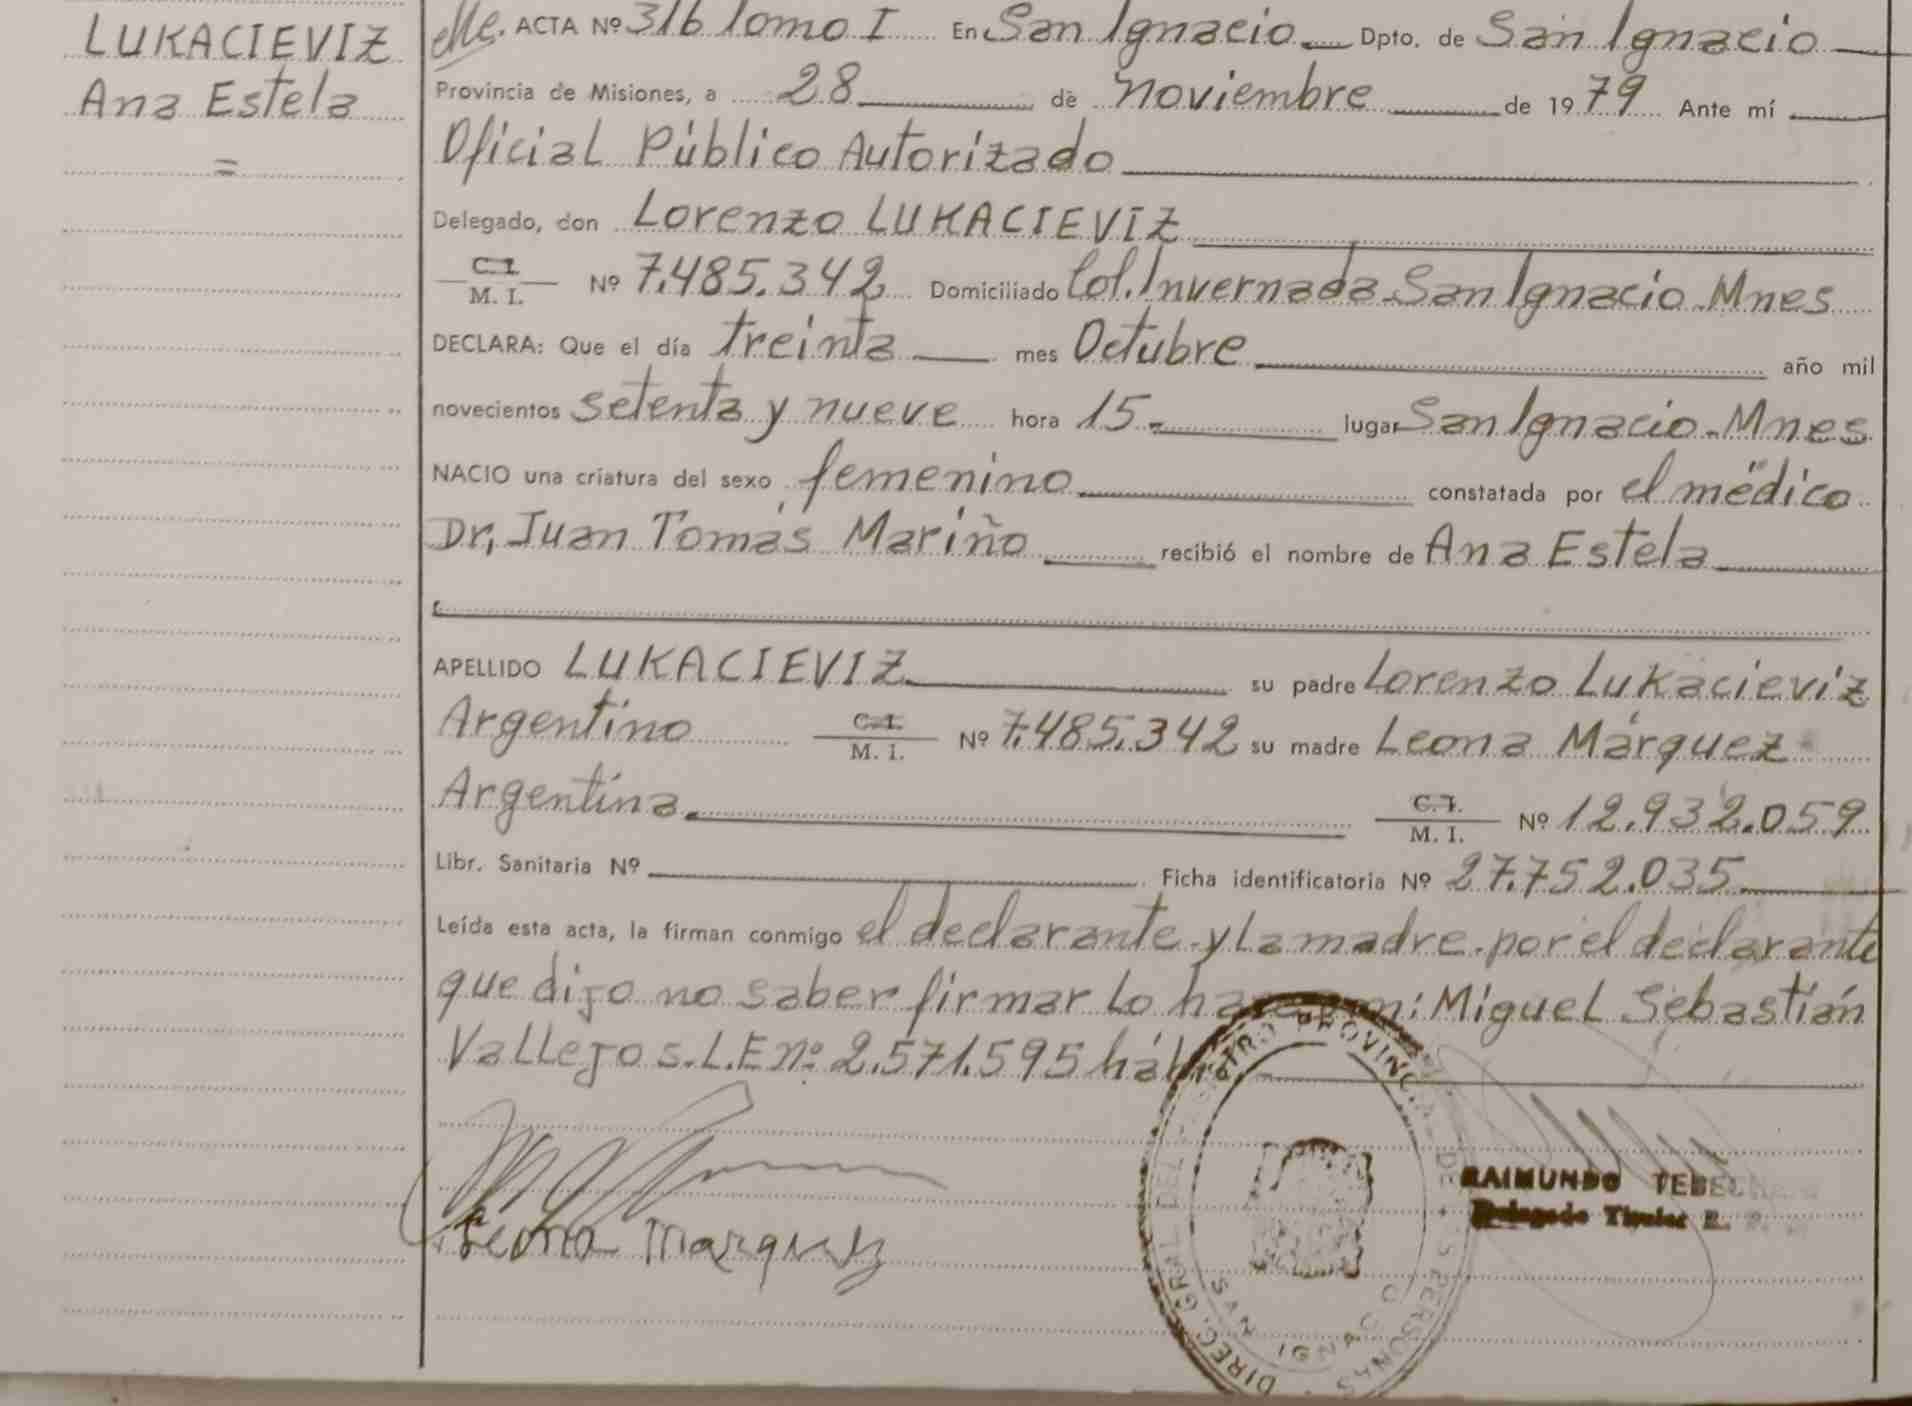 LUKACIEVIZ
Ana Estela
=
ACTA Nº 316 Tomo I En San Ignacio Dpto. de San Ignacio
Provincia de Misiones, a 28 de noviembre de 1979 Ante mí
Oficial Público Autorizado
Delegado, don Lorenzo LUKACIEVIZ
C. I.
M. I. Nº 7.485.342 Domiciliado Col. Invernada-San Ignacio-Mnes
DECLARA: Que el día treinta mes Octubre año mil
novecientos setenta y nueve hora 15.- lugar San Ignacio-Mnes
NACIO una criatura del sexo femenino constatada por el médico
Dr, Juan Tomás Mariño recibió el nombre de Ana Estela
APELLIDO LUKACIEVIZ su padre Lorenzo Lukacieviz
Argentino C. I. M. I. Nº 7.485.342 su madre Leona Márquez
Argentina. C. I. M. I. Nº 12.932.059
Libr. Sanitaria Nº Ficha identificatoria Nº 27.752.035
Leída esta acta, la firman conmigo el declarante-y La madre-por el declarante
que dijo no saber firmar Lo Miguel Sebastián
Vallejos.L.E nº 2.571.595
Leona Marquez
DIREC. GRAL DEL REGISTRO PROVINCIAL DE PERSONAS
SAN IGNACIO
RAIMUNDO
Delegado Titular R.